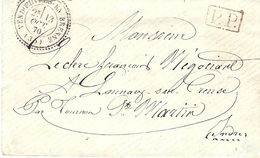 13
OCT.
70
P.P.
Monsieur
Leclerc françois Négociant
A Launay sur Creuse
Par Tournon St Martin
(Indre)